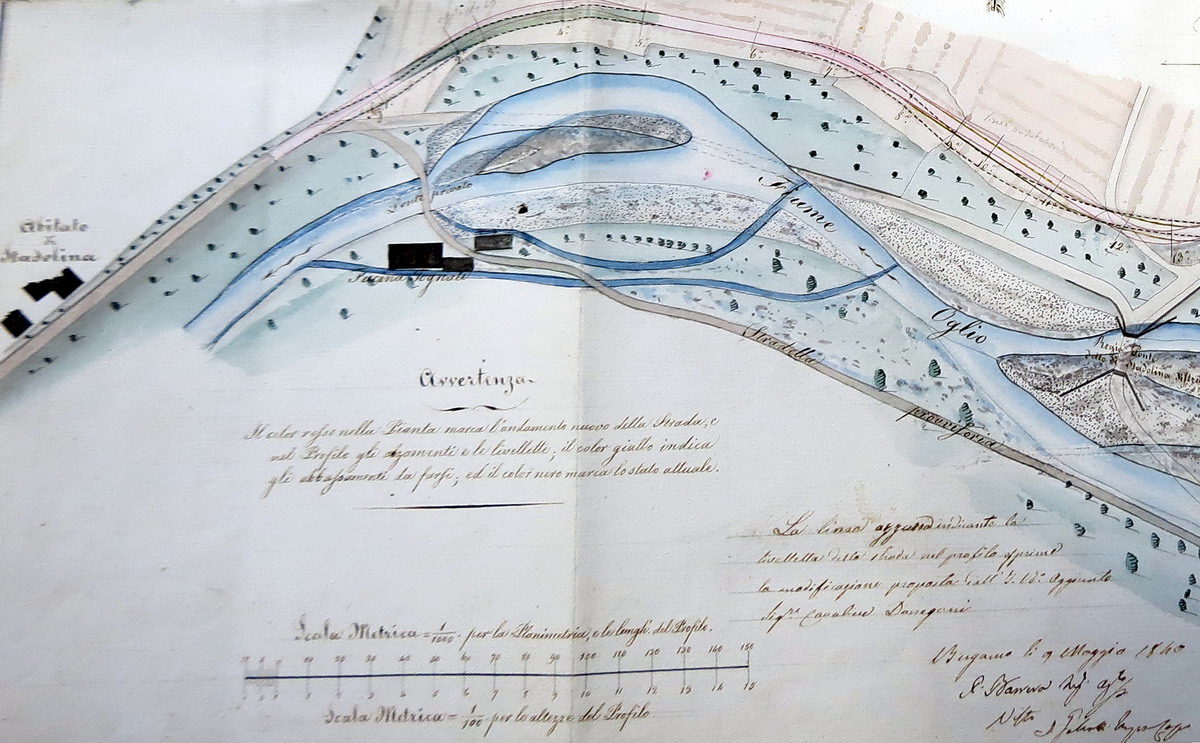 4.
5.
6.
7.
8.
9.
10.
11.
12.
13.
Abitato
di
Madolina
Ponte
Fiume
Oglio
Fucina
Regio Ponte
detto di Madolina
Stradella
provvisoria
Avvertenza
Il color rosso nella Pianta marca l'andamento nuovo della Strada, e
nel Profilo gli alzamenti e le livellette, il color giallo indica
gli abbassamenti da farsi, ed il color nero marca lo stato attuale.
La linea azzurra indicante la
livelletta della strada nel profilo esprime
la modificazione proposta dall' Aggiunto
Sigr. Cavaliere
Scala Metrica = 1/1000 per la Planimetria, e le lungh. del Profilo.
10 20 30 40 50 60 70 80 90 100 110 120 130 140 150
1 2 3 4 5 6 7 8 9 10 11 12 13 14 15
Scala Metrica = 1/100 per le altezze del Profilo
Bergamo li 9 Maggio 1840
Visto